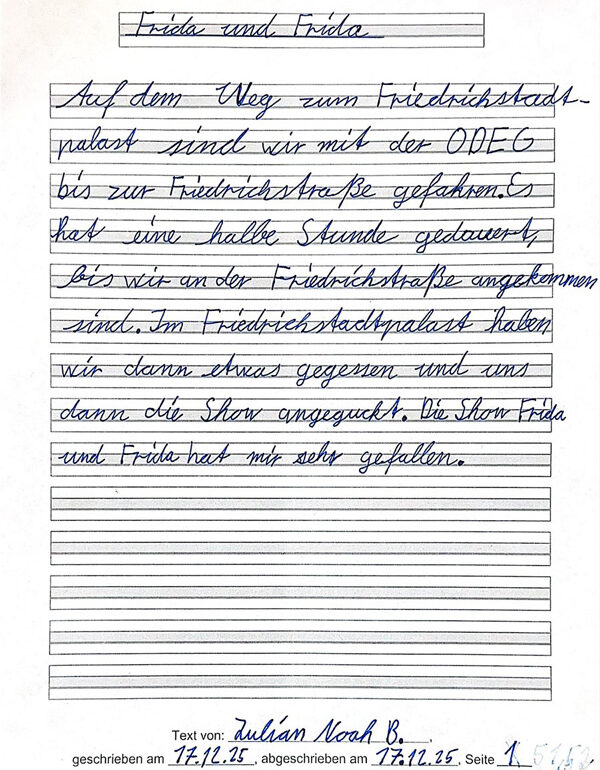 Frida und Frida
Auf dem Weg zum Friedrichstadt-
palast sind wir mit der ODEG
bis zur Friedrichstraße gefahren. Es
hat eine halbe Stunde gedauert,
bis wir an der Friedrichstraße angekommen
sind. Im Friedrichstadtpalast haben
wir dann etwas gegessen und uns
dann die Show angeguckt. Die Show Frida
und Frida hat mir sehr gefallen.
Text von: Julian Noah B.
geschrieben am 17.12.25, abgeschrieben am 17.12.25, Seite 1